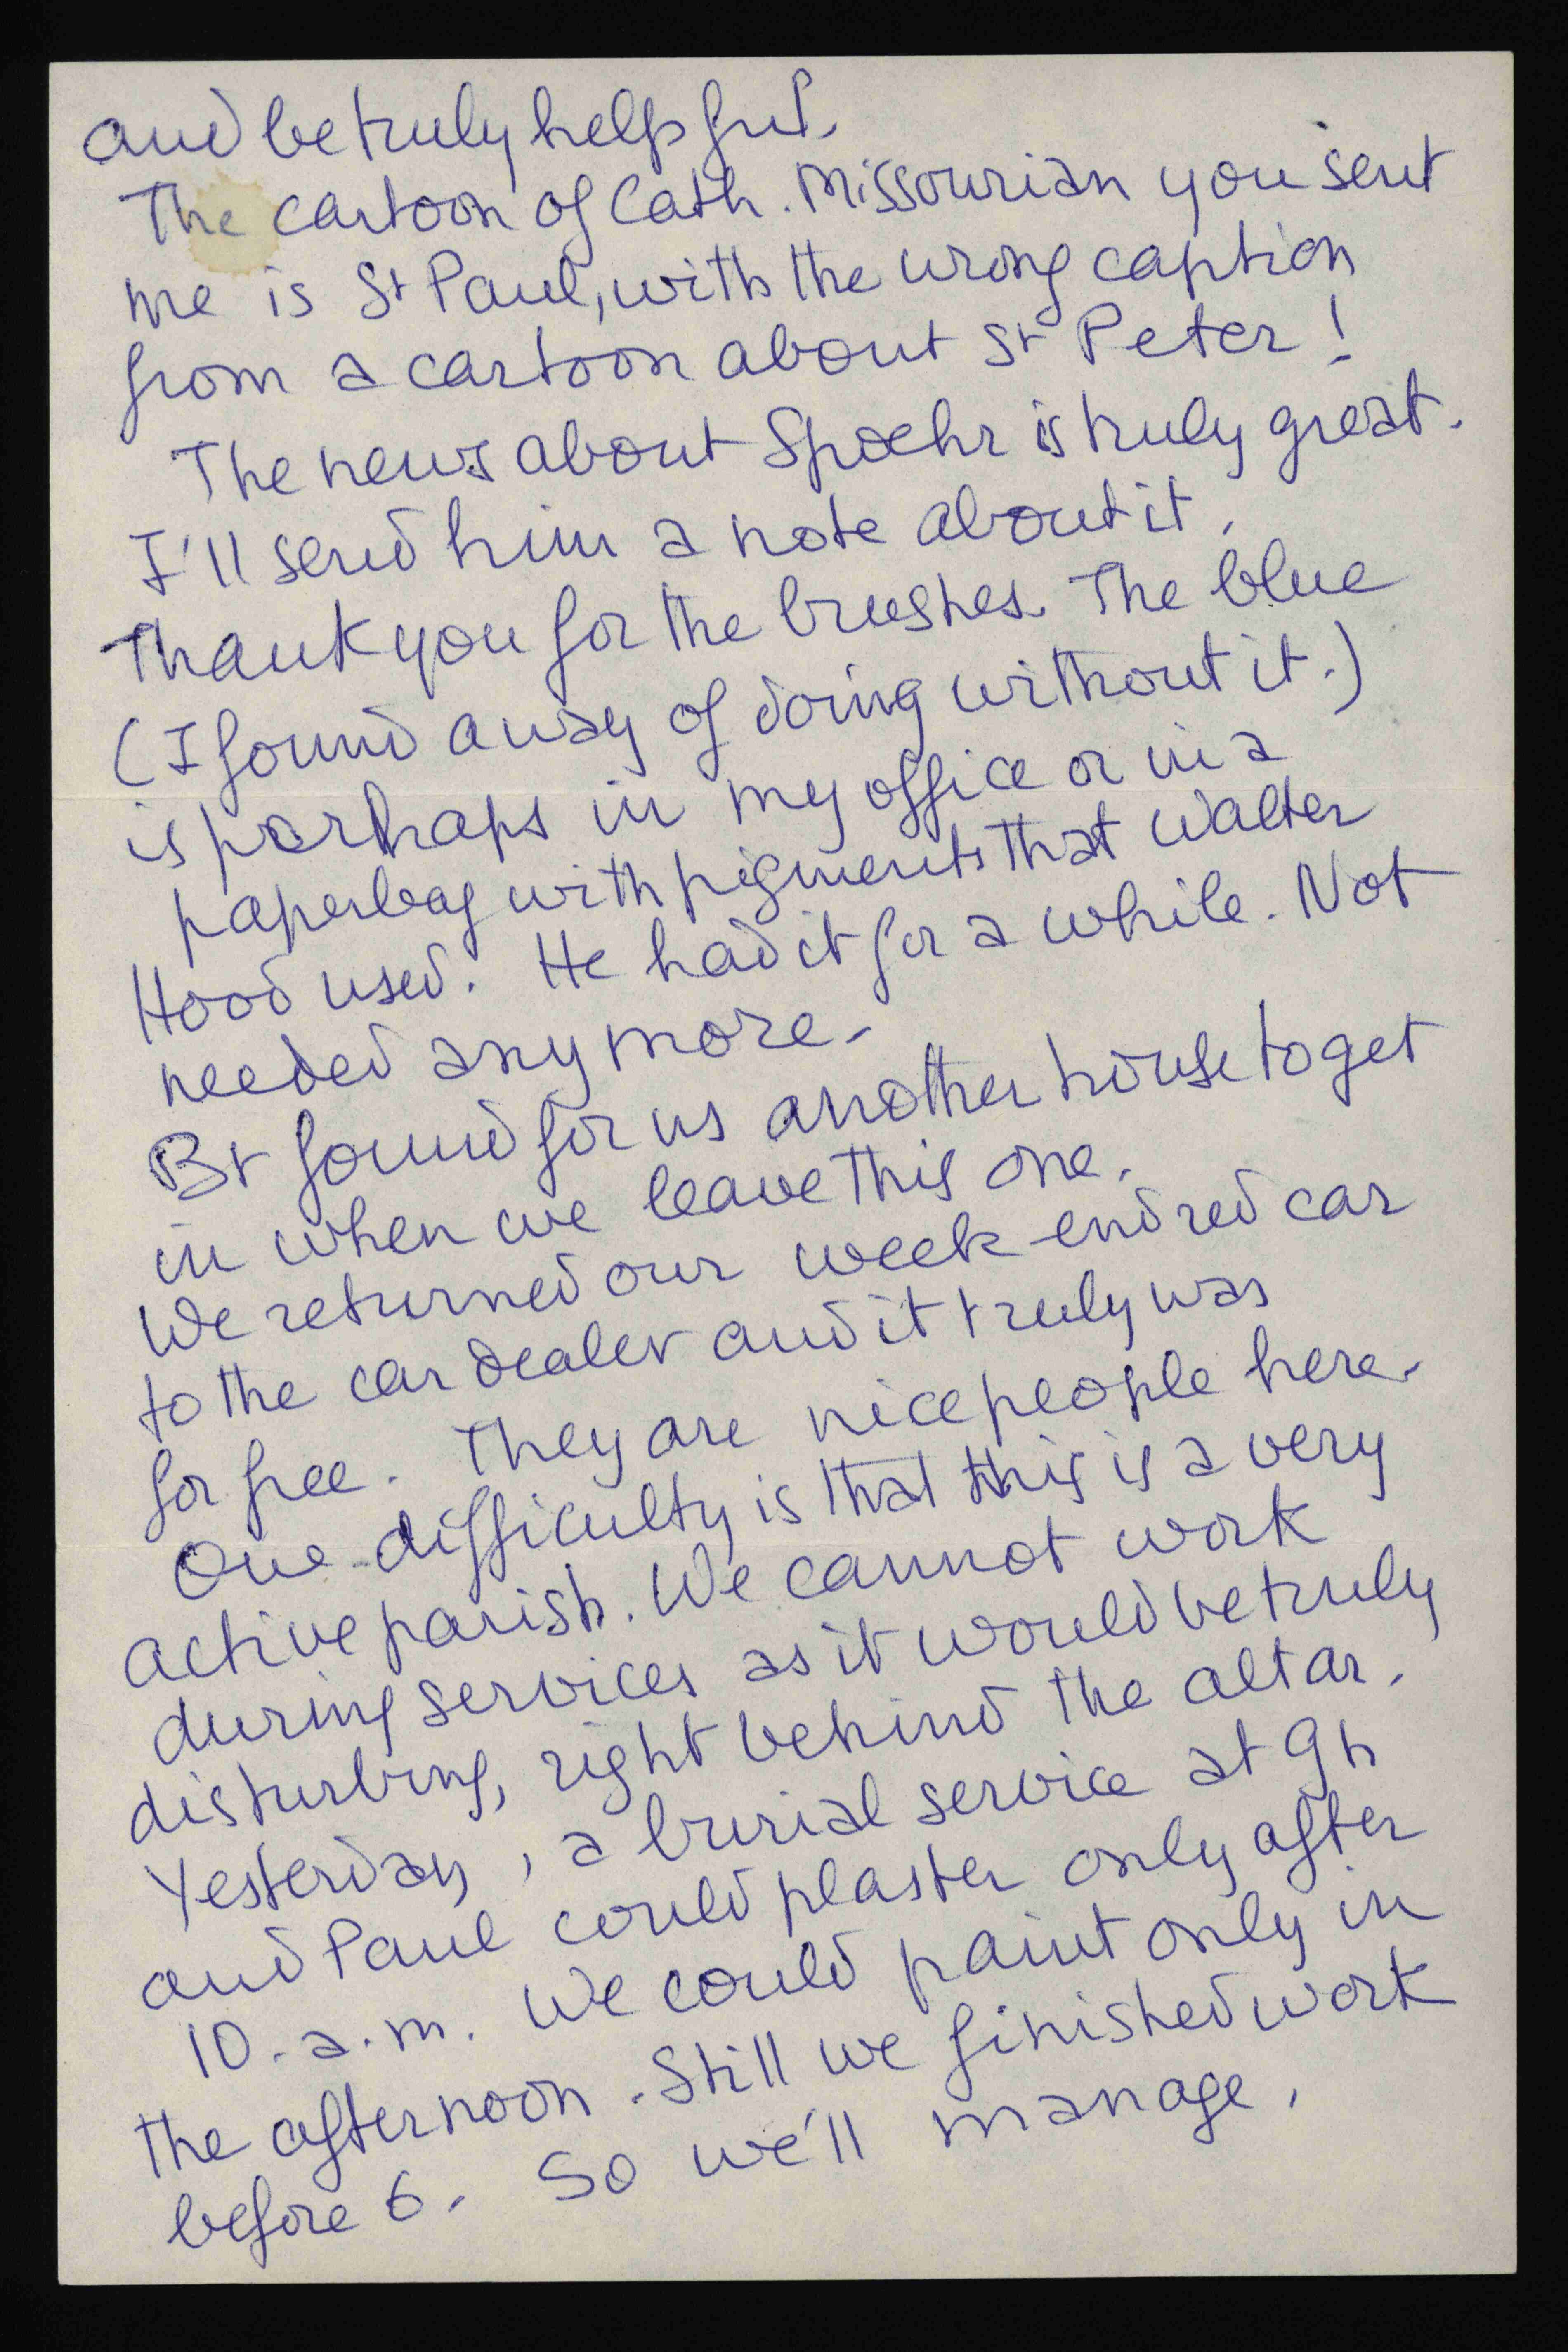 and be truly helpful.
The cartoon of Cath. Missourian you sent
me is St Paul, with the wrong caption
from a cartoon about St Peter!
The news about Spoehr is truly great.
I'll send him a note about it.
Thank you for the brushes. The blue
(I found a way of doing without it.)
is perhaps in my office or in a
paperbag with pigments that Walter
Hood used. He had it for a while. Not
needed any more.
Br found for us another house to get
in when we leave this one.
We returned our week-end red car
to the car dealer and it truly was
for free. They are nice people here.
One difficulty is that this is a very
active parish. We cannot work
during services as it would be truly
disturbing, right behind the altar.
Yesterday, a burial service at 9h
and Paul could plaster only after
10. a.m. We could paint only in
the afternoon. Still we finished work
before 6. So we'll manage.